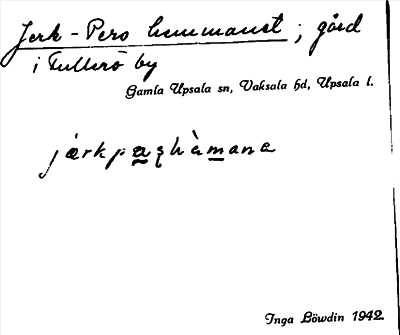 Jerk-Pers hemmanet ; gård
i Fullerö by
Gamla Upsala sn, Vaksala hd, Upsala l.
Inga Löwdin 1942.